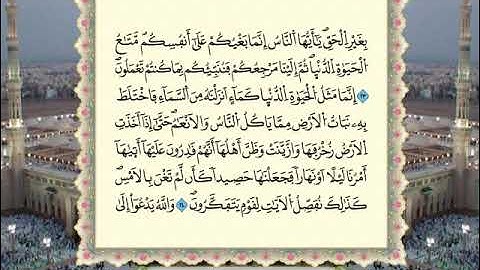 بِغَيْرِ الْحَقِّ يَٰٓأَيُّهَا النَّاسُ إِنَّمَا بَغْيُكُمْ عَلَىٰٓ أَنْفُسِكُمْ مَّتَٰعَ
الْحَيَوٰةِ الدُّنْيَا ثُمَّ إِلَيْنَا مَرْجِعُكُمْ فَنُنَبِّئُكُمْ بِمَا كُنْتُمْ تَعْمَلُونَ
۝٢٣ إِنَّمَا مَثَلُ الْحَيَوٰةِ الدُّنْيَا كَمَآءٍ أَنْزَلْنَٰهُ مِنَ السَّمَآءِ فَاخْتَلَطَ
بِهِۦ نَبَاتُ الْأَرْضِ مِمَّا يَأْكُلُ النَّاسُ وَالْأَنْعَٰمُ حَتَّىٰٓ إِذَآ أَخَذَتِ
الْأَرْضُ زُخْرُفَهَا وَازَّيَّنَتْ وَظَنَّ أَهْلُهَآ أَنَّهُمْ قَٰدِرُونَ عَلَيْهَآ أَتَىٰهَآ
أَمْرُنَا لَيْلًا أَوْ نَهَارًا فَجَعَلْنَٰهَا حَصِيدًا كَأَنْ لَمْ تَغْنَ بِالْأَمْسِ
كَذَٰلِكَ نُفَصِّلُ الْأٓيَٰتِ لِقَوْمٍ يَتَفَكَّرُونَ ۝٢٤ وَاللَّهُ يَدْعُوٓا إِلَىٰ